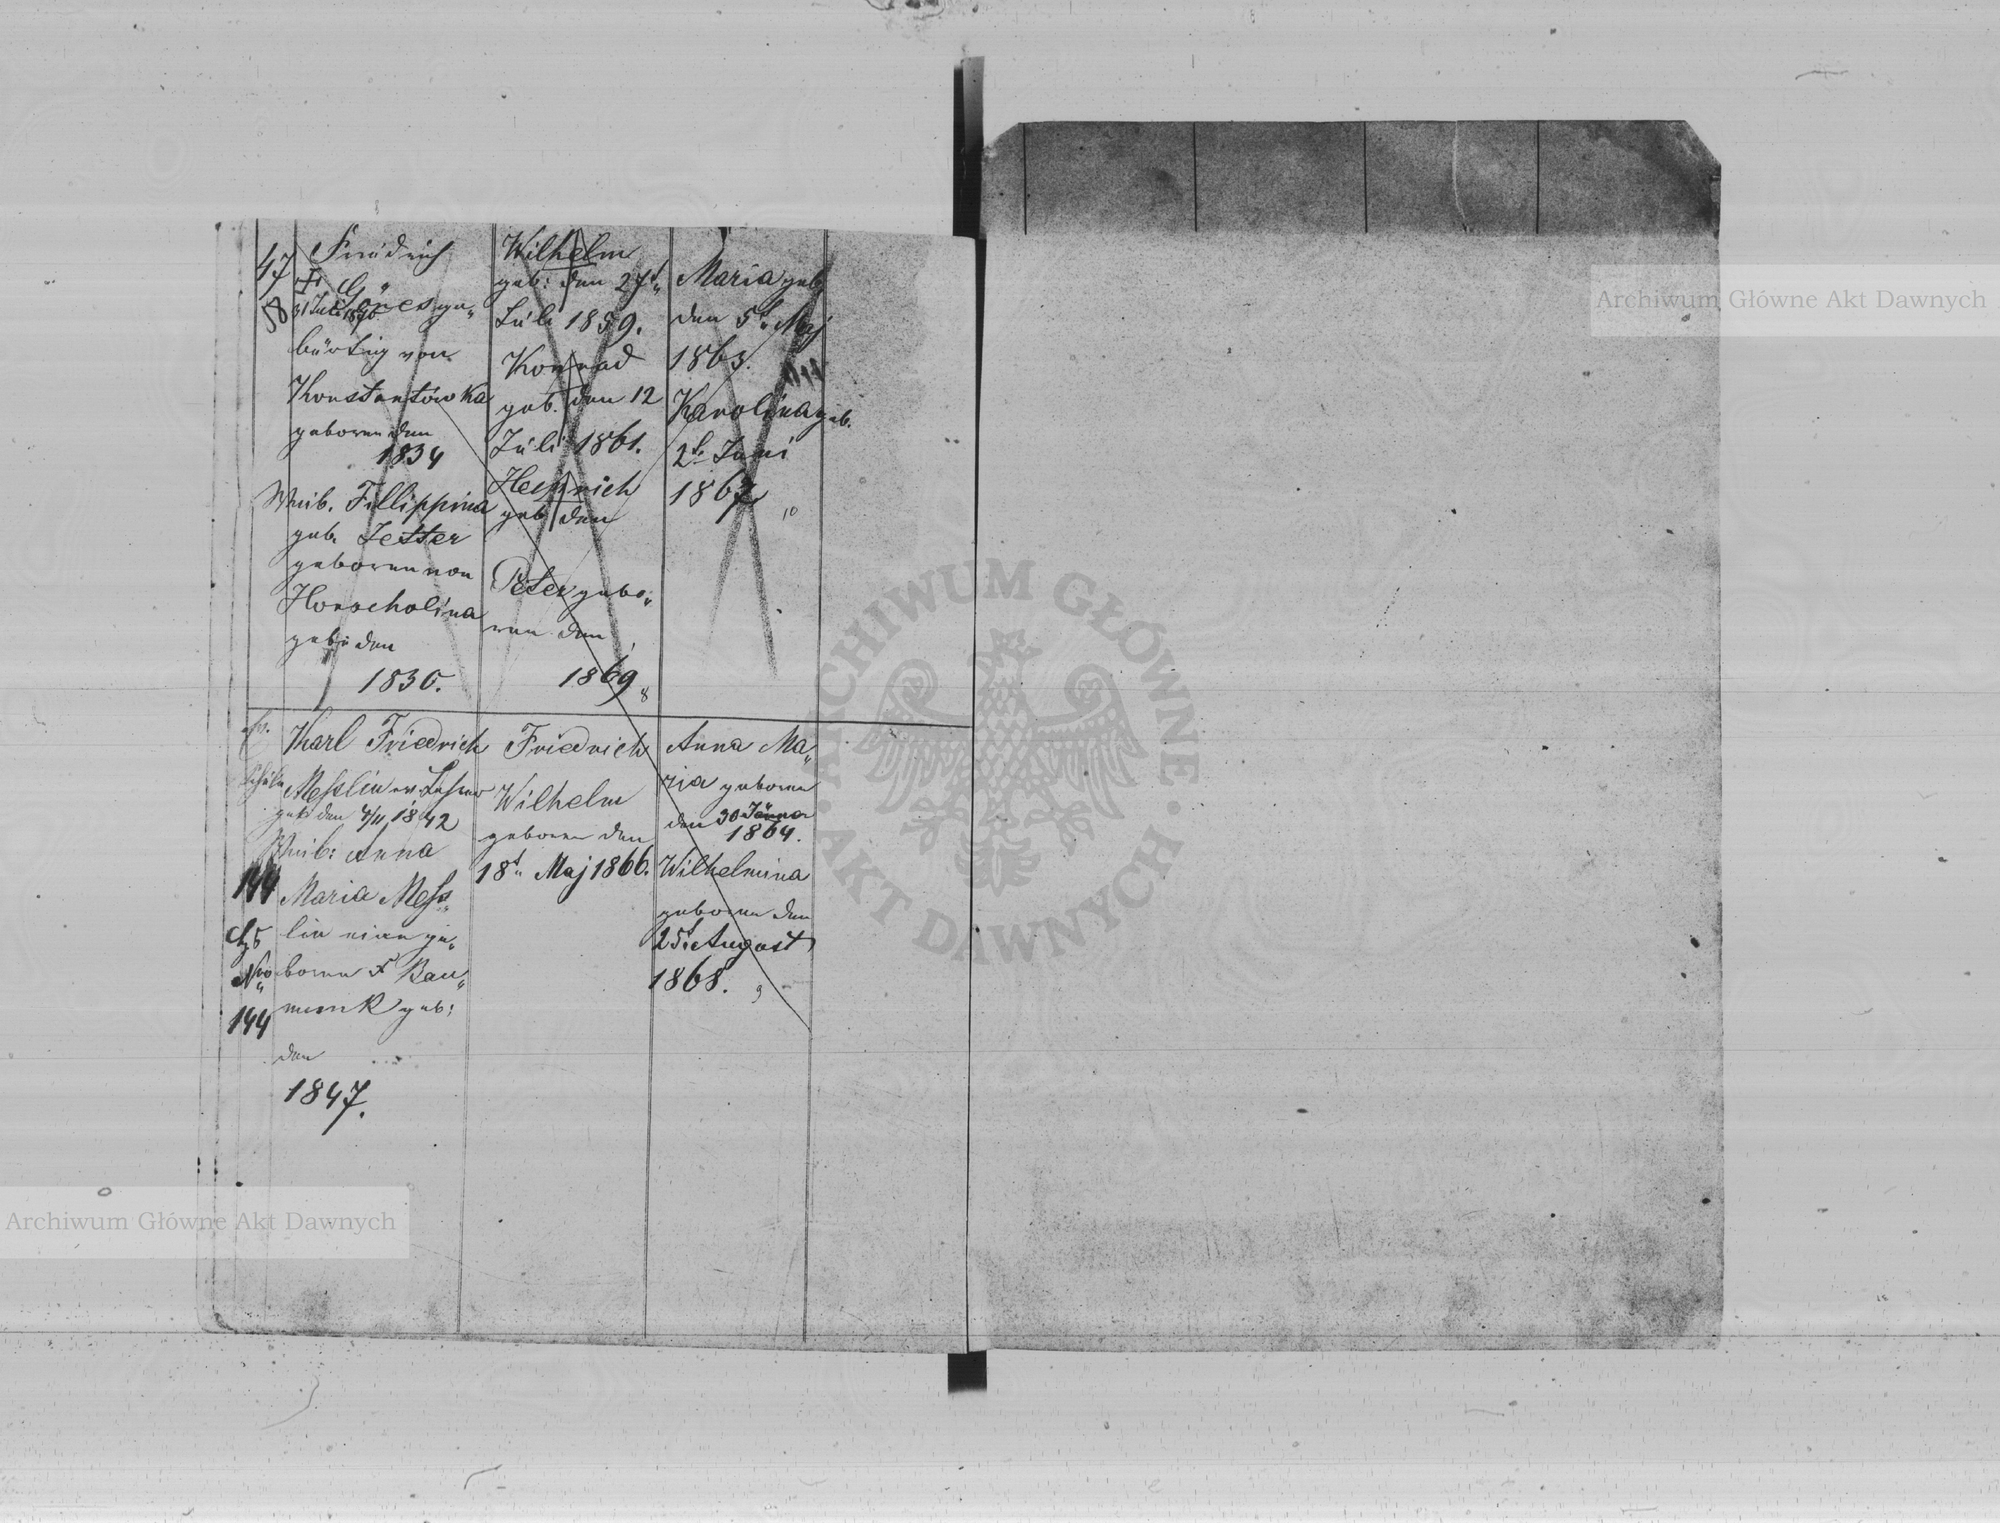 47
58
Friedrich
†
31 Juli 1890
Göres ge„
bürtig von
Konstantowka
geboren den
1834
Weib. Fillippina
geb. Jesser
geboren von
Horocholina
geb: den
1830.
Wilhelm
geb: den 27t„
Juli 1859.
Konrad
geb. den 12
Juli 1861.
Heinrich
geb den
Peter gebo„
ren den
1869
8
Maria geb
den 5t„ Maj
1863.
Karolina geb.
2t Juni
1867
10
Schule
144
Nro
144
Karl Friedrich
Messlin
geb den 4/11 1842
Weib: Anna
Maria Mess„
lin eine ge„
borene
geb:
den
1847.
Friedrich
Wilhelm
geboren den
18t„ Maj 1866.
Anna Ma„
ria geboren
den 30 Jänner
1864.
Wilhelmina
geboren den
25t August
1868.
9
Archiwum Główne Akt Dawnych
ARCHIWUM GŁÓWNE · AKT DAWNYCH ·
Archiwum Główne Akt Dawnych